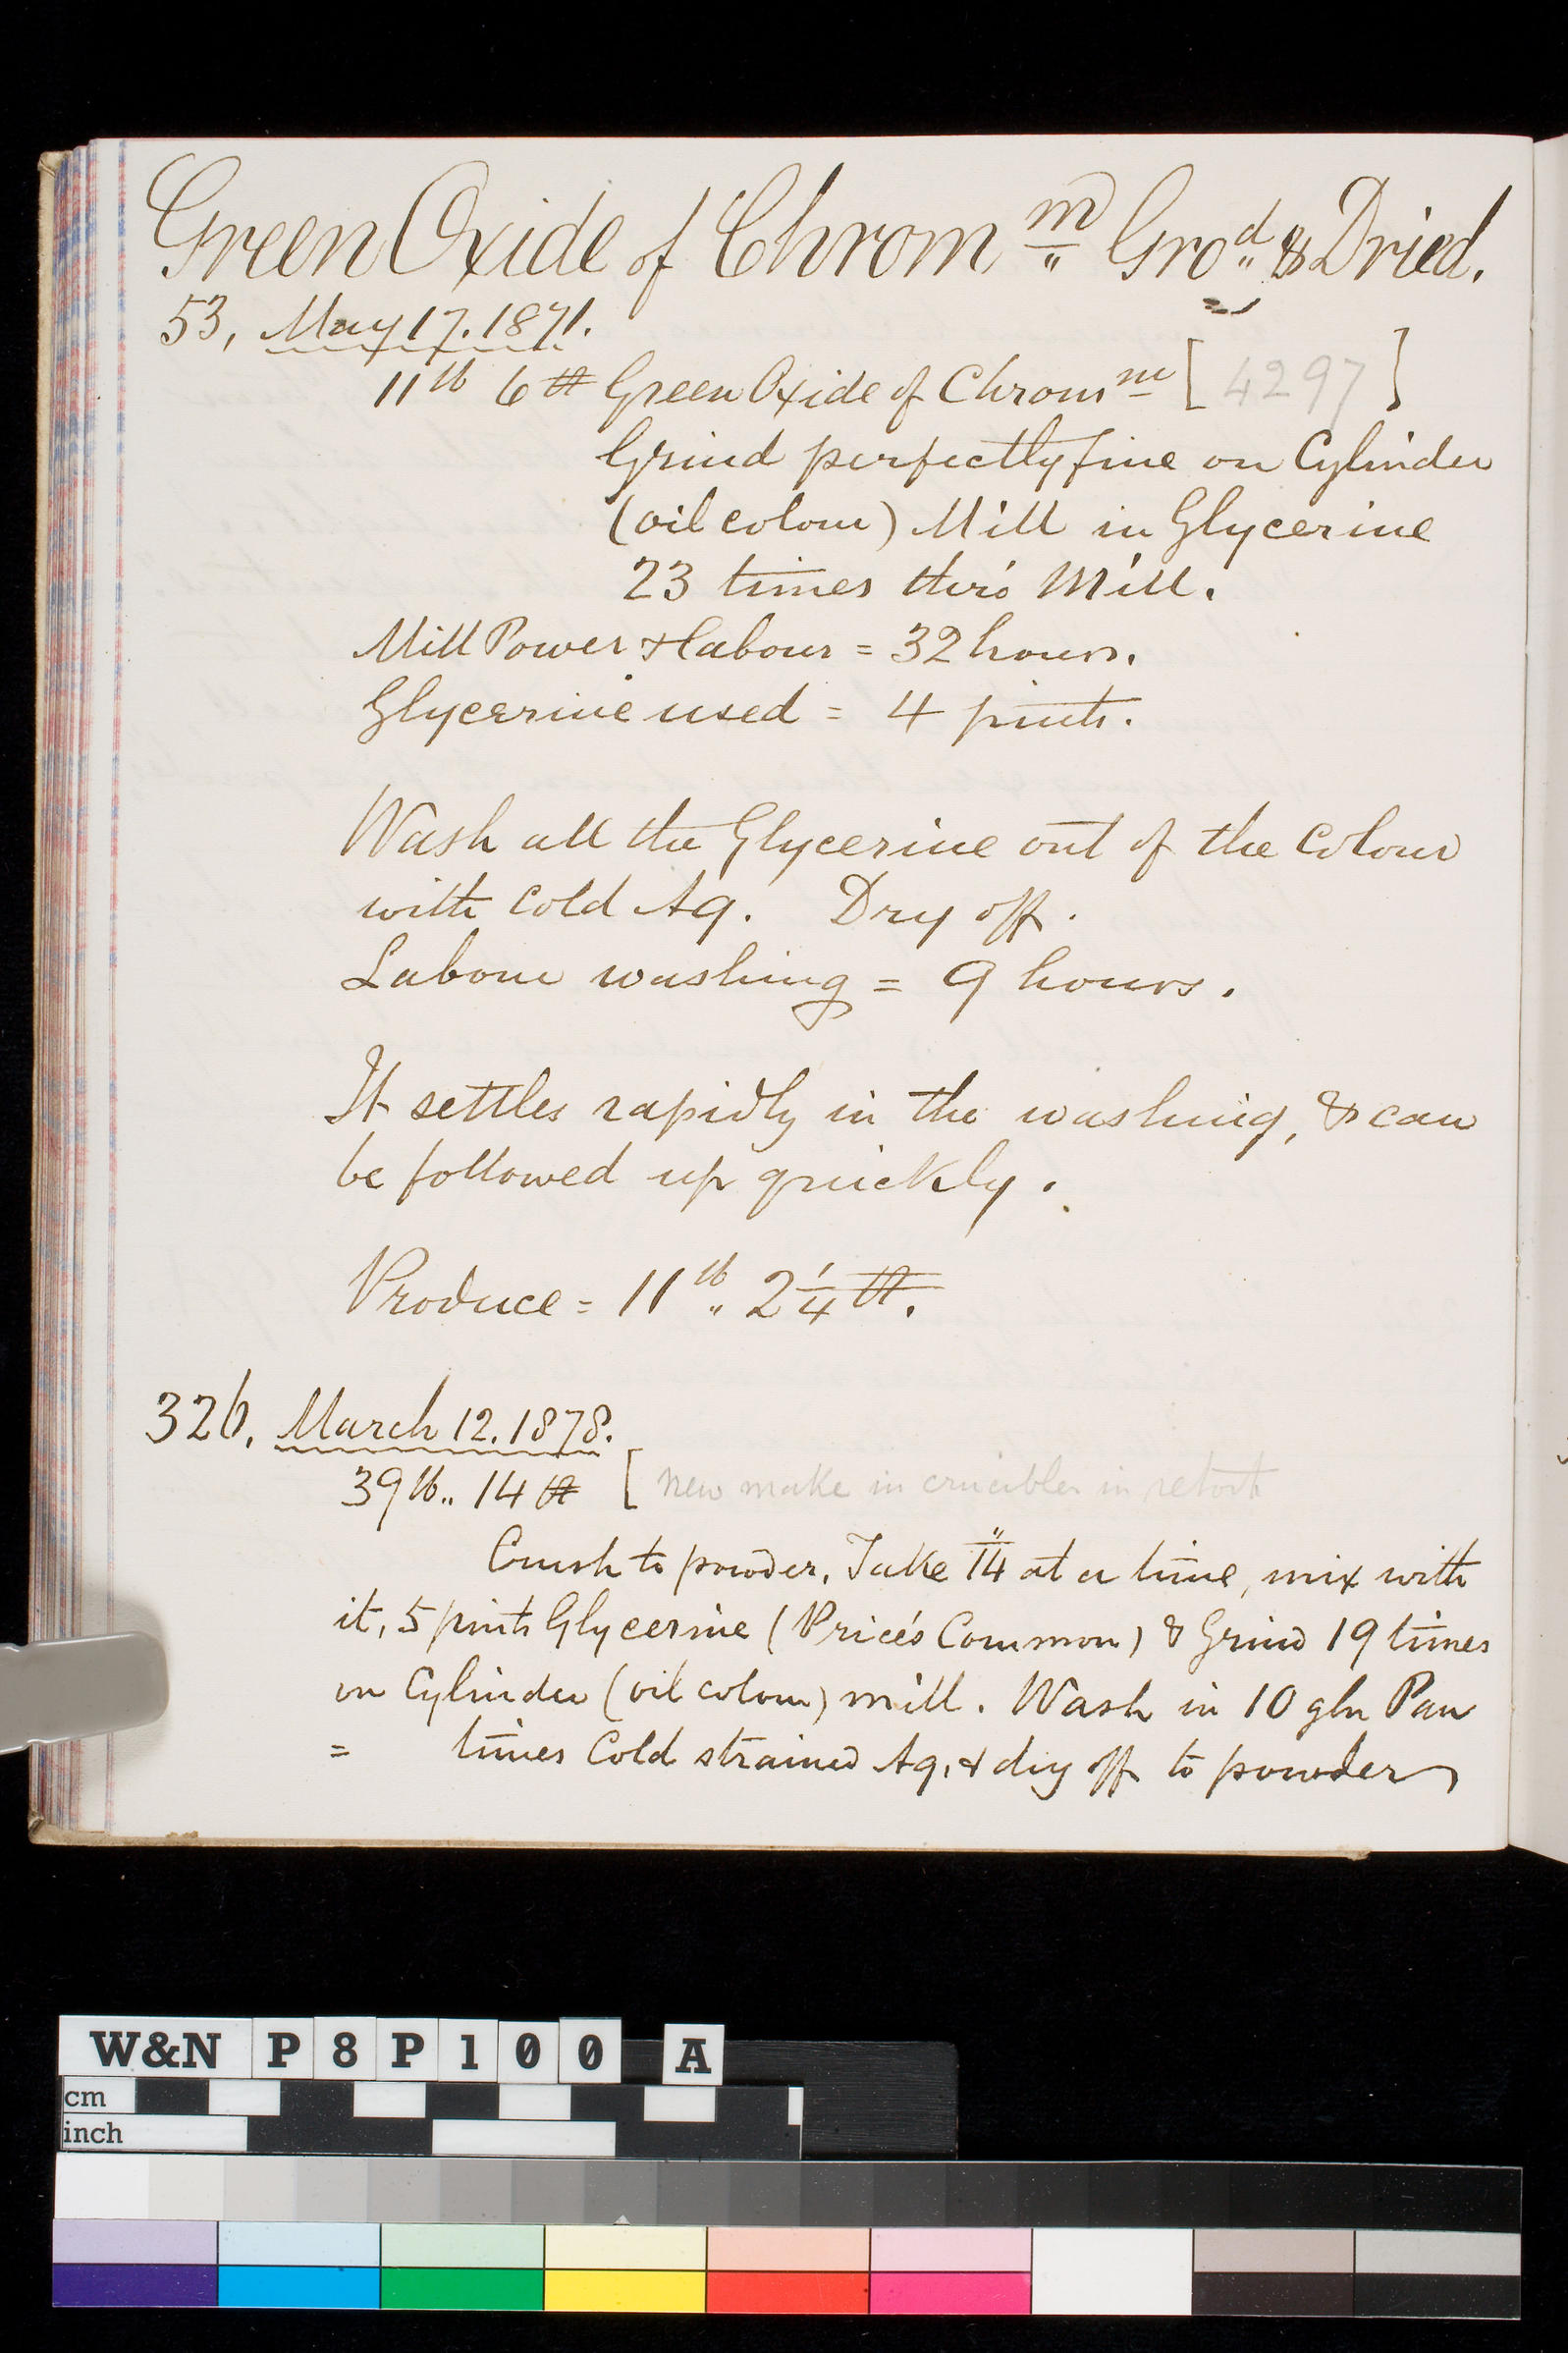 Green Oxide of Chrom m Gro.d & Dried.
53, May 17. 1871.
11 lb 6 tt Green Oxide of Chrom m [4297]
Grind perfectly fine on Cylinder
(oil colour) Mill in Glycerine
23 times thro' Mill.
Mill Power & labour = 32 hours.
Glycerine used = 4 pints.
Wash all the Glycerine out of the Colour
with Cold Aq. Dry off.
Labour washing = 9 hours.
It settles rapidly in the washing, & can
be followed up quickly.
Produce = 11 lb.. 2 1/4 tt.
326, March 12. 1878.
39 lb.. 14 tt [new make in crucibles in retort
Crush to powder, Take 14" at a time, mix with
it, 5 pints Glycerine (Price's Common) & Grind 19 times
on Cylinder (oil colour) mill. Wash in 10 gln Pan
= times Cold strained Aq, & dry off to powder
W&N P8P100 A
cm
inch